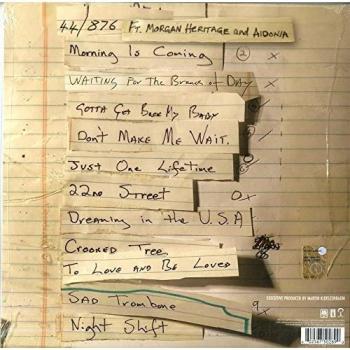 44/876 FT. MORGAN HERITAGE AND AIDONIA
Morning Is Coming 2 x
WAITING For The Break of DAY x
GOTTA GET BACK MY BABY
DON'T MAKE ME WAIT.
Just One Lifetime
22nd Street 0x
Dreaming in the U.S.A
CROOKED TREE
To LOVE AND BE LOVED
SAD Trombone 9x
Night Shift
EXECUTIVE PRODUCED BY MARTIN KIERSZENBAUM